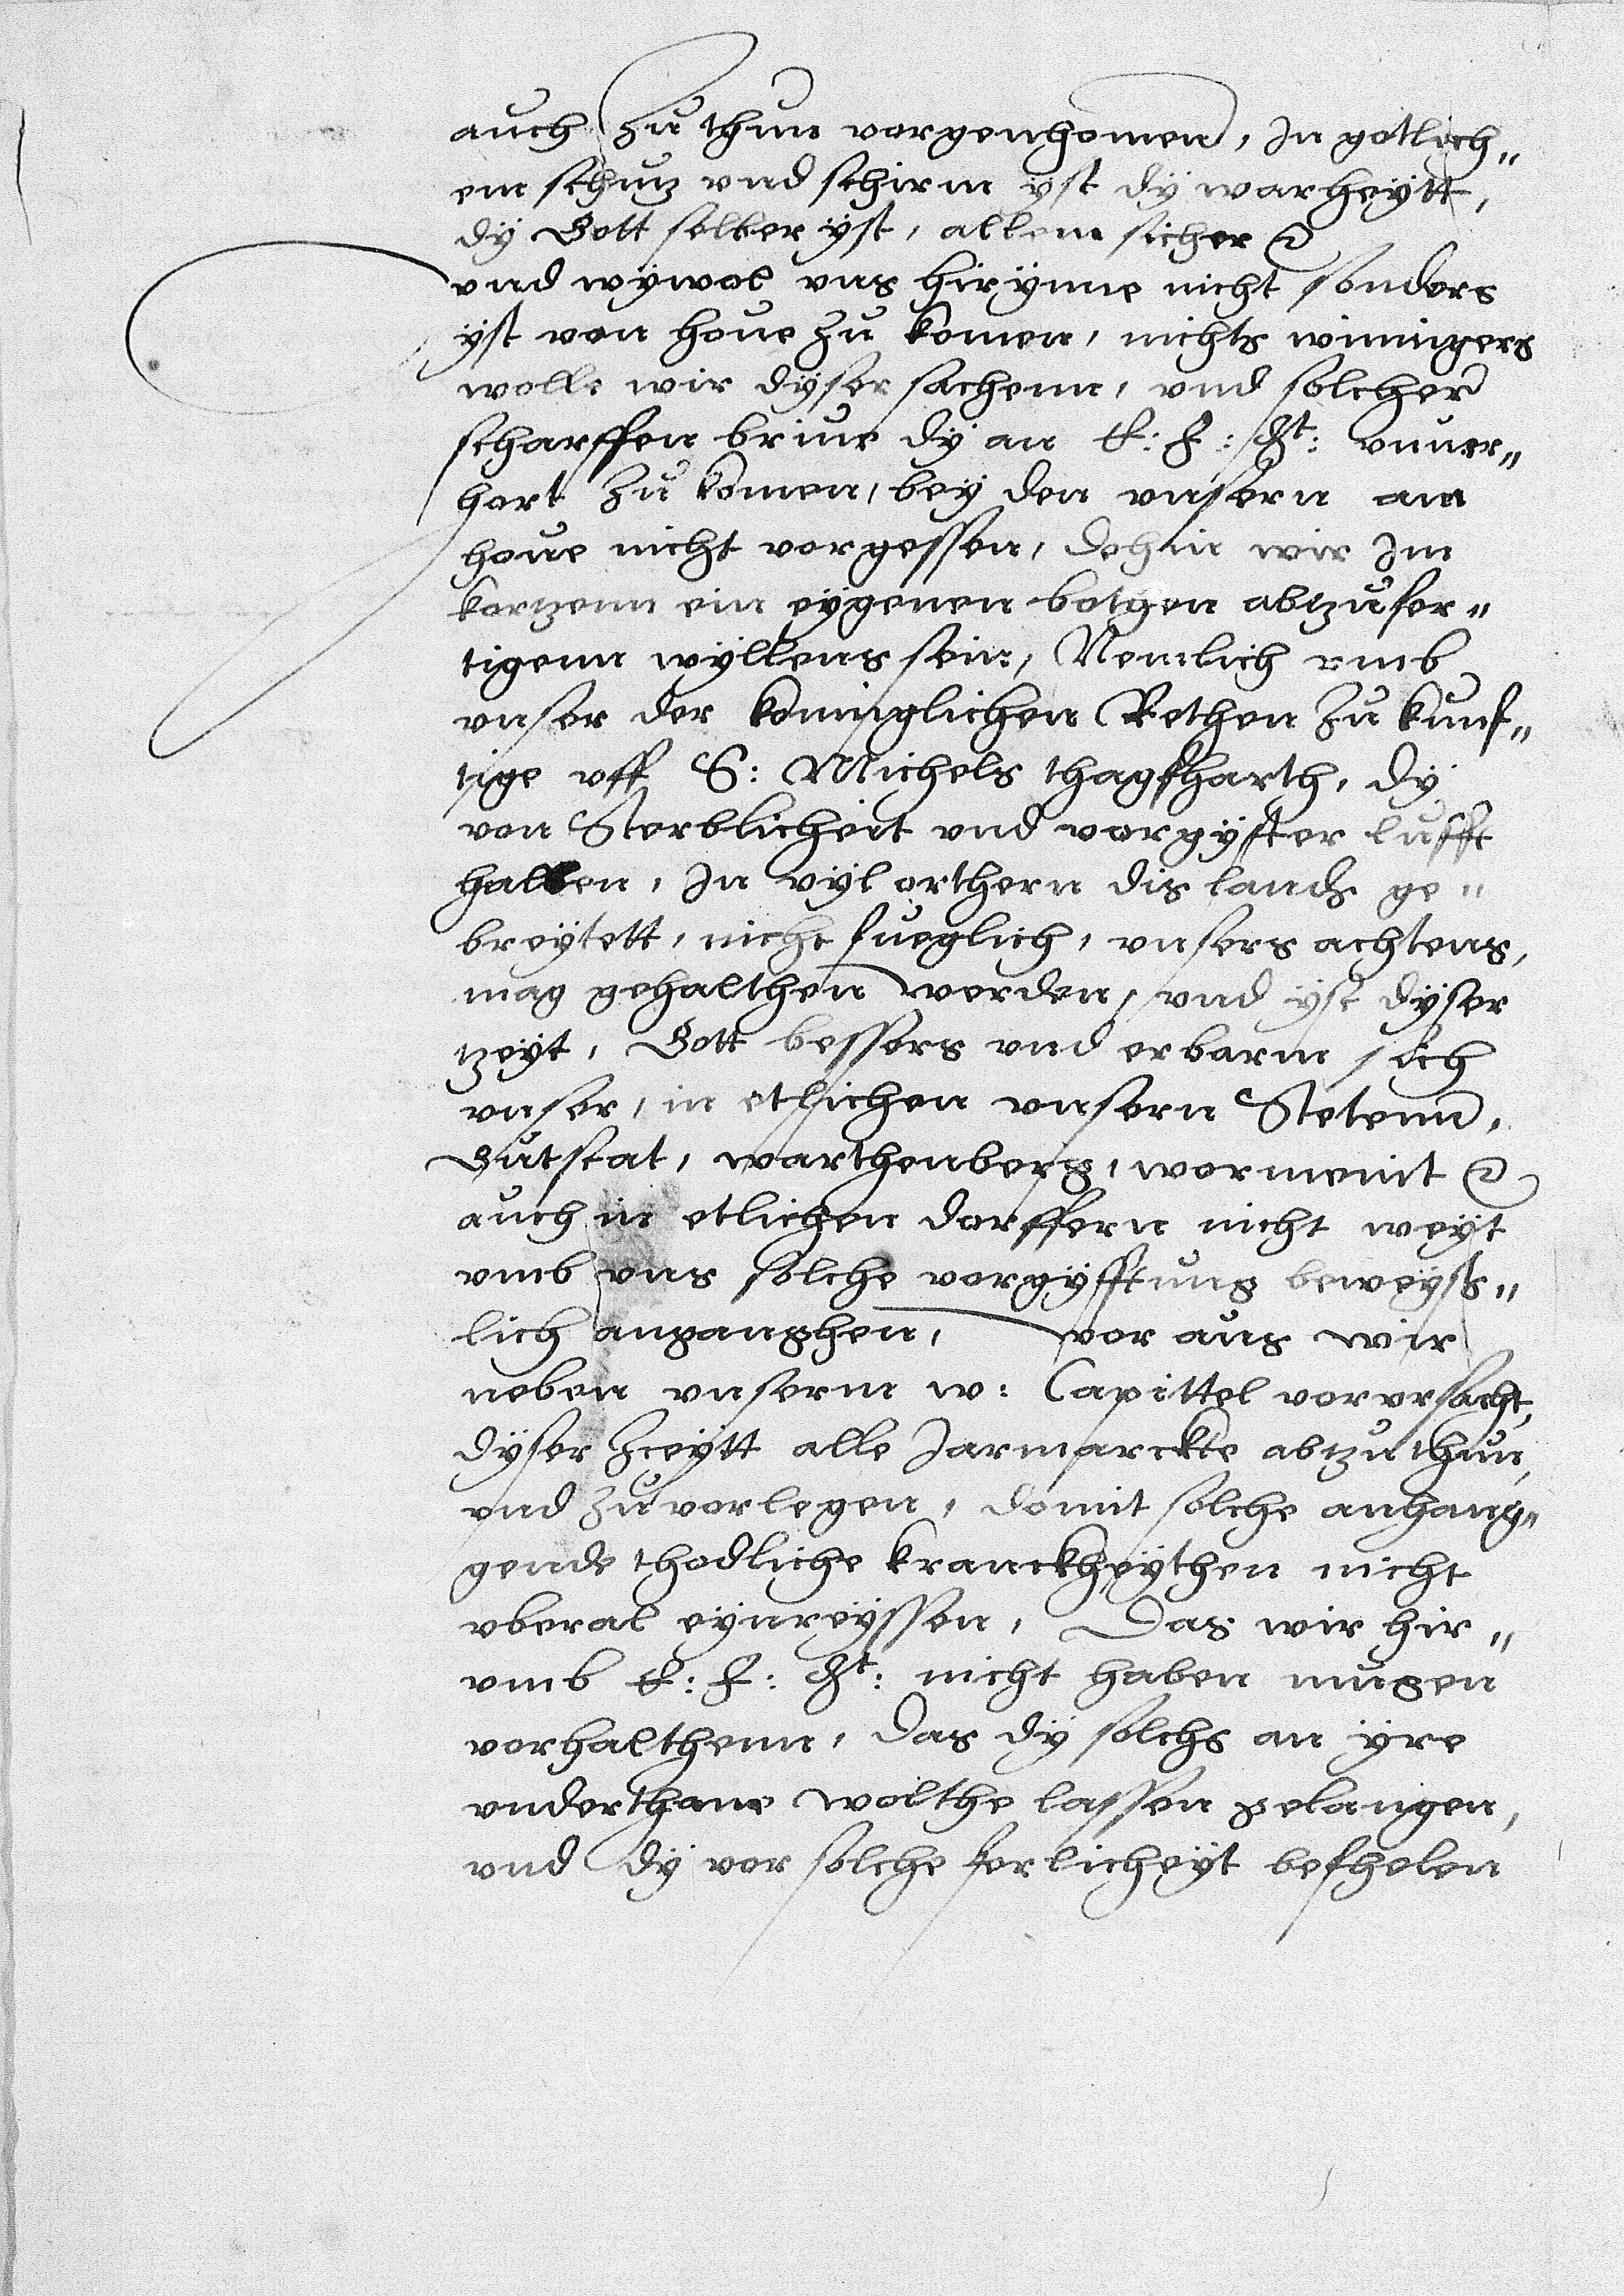 auch zu thun vorgenhomen, In gotlich„
em schutz vnd schirm yst dy warheytt,
dy Gott selber yst, allem sicher etc
vnd wywol vns hirynne nicht sonders
yst von houe zu komen, nichts winnigers
wolle wir dyser sachenn, vnd solcher
scharffen briue dy an E: F: Gt: vnuer„
hort zu komen, bey den vnsern am
houe nicht vorgessen, dohin wir Im
kortzenn ein eygenen bothen abtzufer„
tigenn wyllens sein, Nemlich vmb
vnser der koninglichen Rethen zu kunf„
tige vff S: Michels thagfharth, dy
von Sterblicheit vnd vorgyfter lufft
halben, In vyl orthern dis lands ge„
breytett, nicht fueglich, vnsers achtens,
mag gehalthen werden, vnd yst dyser
tzeyt, Gott bessers vnd erbarm sich
vnser, in etlichen vnsern Stetenn,
Gutstat, warthenberg, wormenit etc
auch in etlichen dorffern nicht weyt
vmb vns solche vorgyfftung beweyß„
lich anganghen, vor aus wir
neben vnserm w: Capittel vorvrsacht,
dyser Zceytt alle Jarmarckte abtzuthun,
vnd zuvorlegen, domit solche anhang„
gende thodliche kranckheythen nicht
vberal eynreyssen, Das wir hir„
vmb E: F: Gt: nicht haben mugen
vorhalthenn, das dy solchs an yre
vnderthane wolthe lassen gelangen,
vnd dy vor solche ferlicheyt befhelen